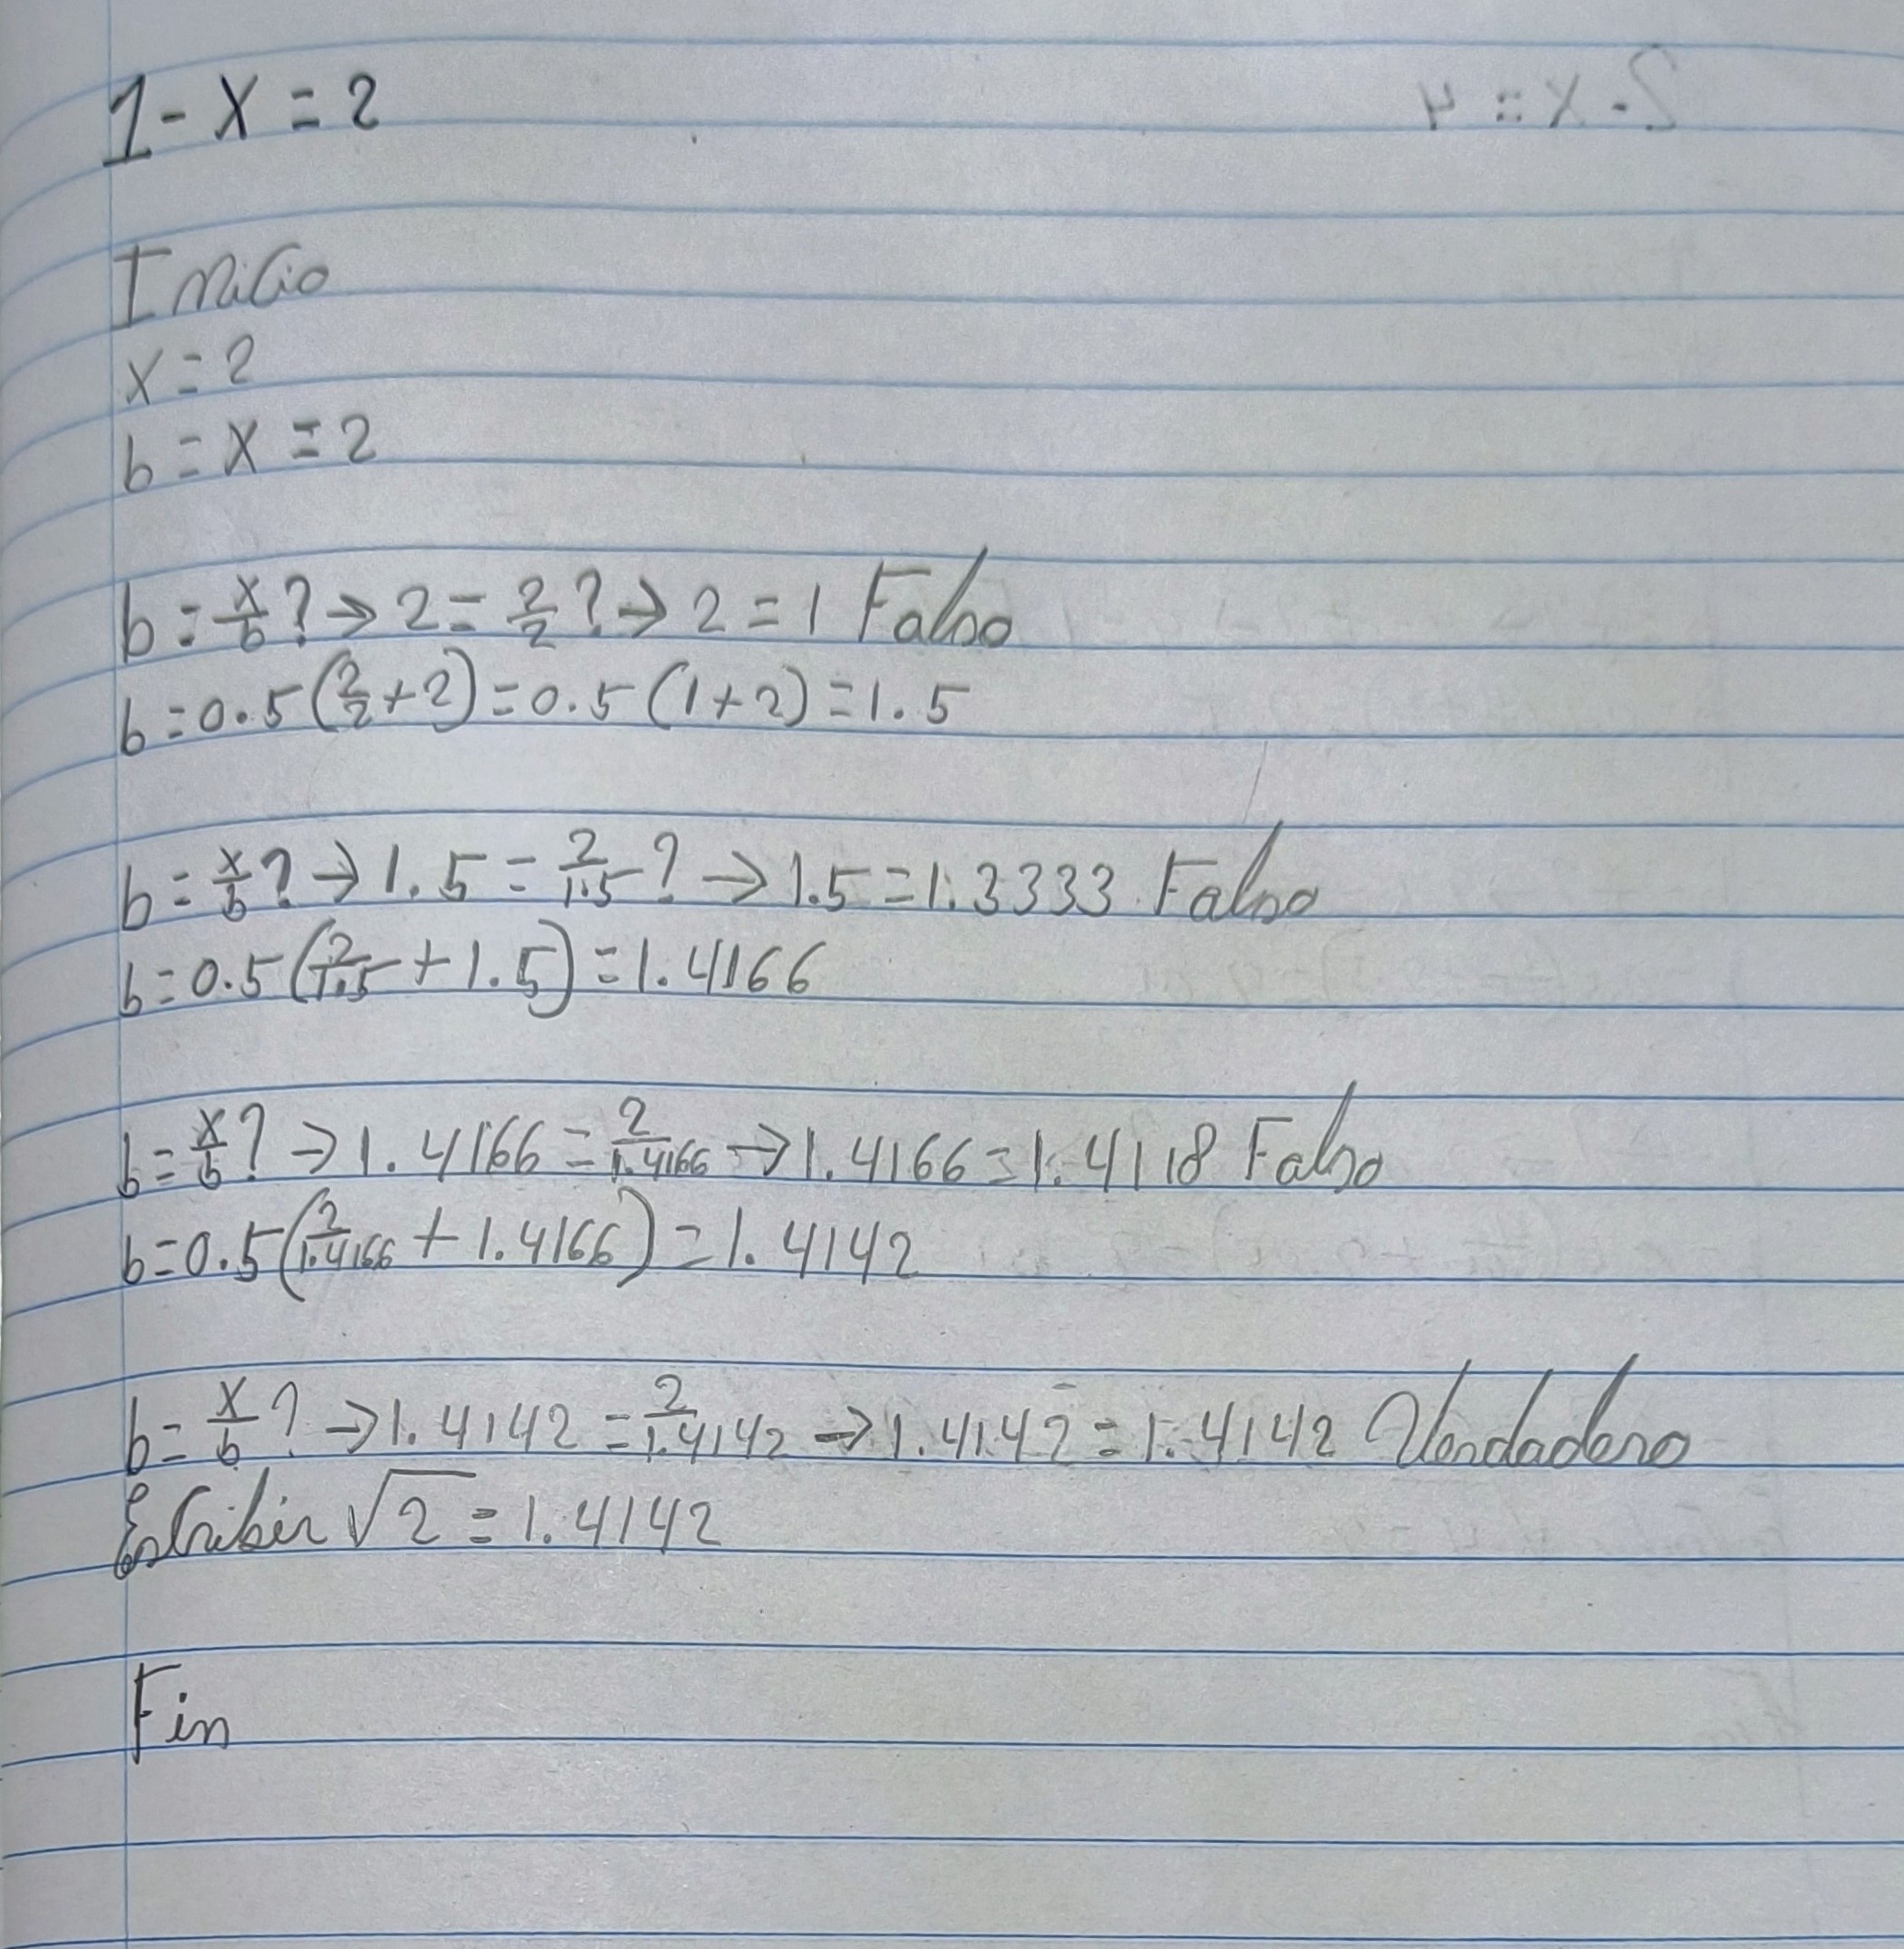 1- X = 2
2- X = 4
Inicio
X = 2
b = X = 2
b = x/b ? → 2 = 2/2 ? → 2 = 1 Falso
b = 0.5 (2/2 + 2) = 0.5 (1 + 2) = 1.5
b = x/b ? → 1.5 = 2/1.5 ? → 1.5 = 1.3333 Falso
b = 0.5 (2/1.5 + 1.5) = 1.4166
b = x/b ? → 1.4166 = 2/1.4166 → 1.4166 = 1.4118 Falso
b = 0.5 (2/1.4166 + 1.4166) = 1.4142
b = x/b ? → 1.4142 = 2/1.4142 → 1.4142 = 1.4142 Verdadero
Escribir √2 = 1.4142
Fin